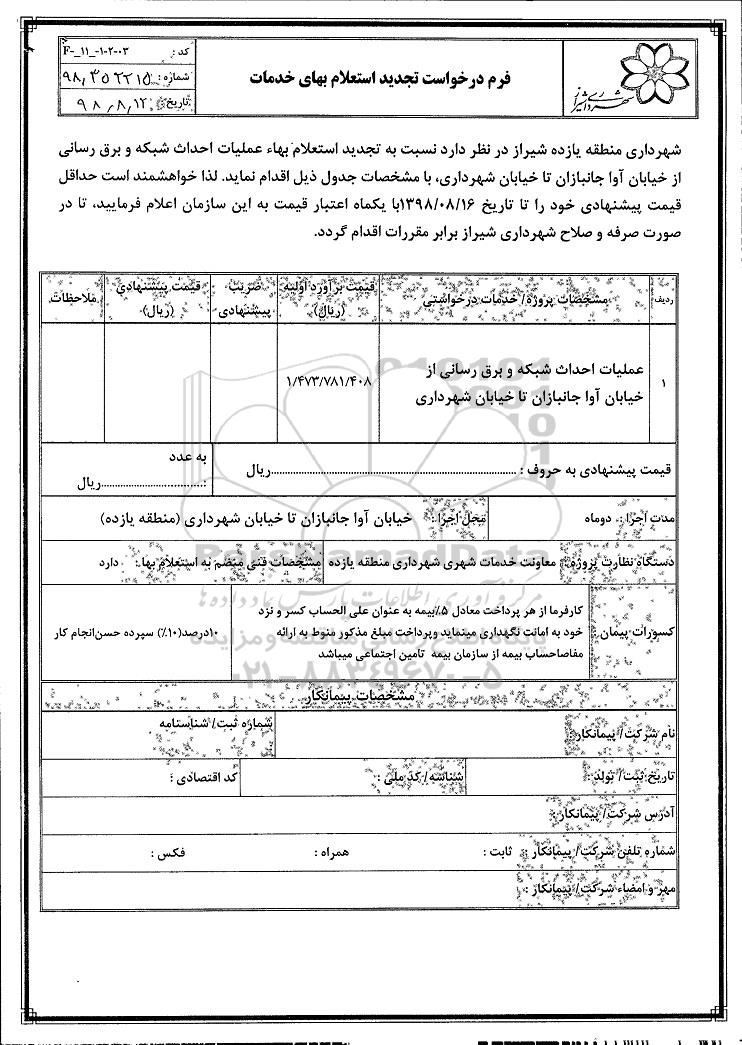 شهرداری شیراز
فرم درخواست تجدید استعلام بهای خدمات
کد : F-_11_-1-2-03
شماره : ۹۸,۳۵۲۲۱۵
تاریخ : ۹۸,۸,۱۲
شهرداری منطقه یازده شیراز در نظر دارد نسبت به تجدید استعلام بهاء عملیات احداث شبکه و برق رسانی
از خیابان آوا جانبازان تا خیابان شهرداری، با مشخصات جدول ذیل اقدام نماید. لذا خواهشمند است حداقل
قیمت پیشنهادی خود را تا تاریخ ۱۳۹۸/۰۸/۱۶با یکماه اعتبار قیمت به این سازمان اعلام فرمایید، تا در
صورت صرفه و صلاح شهرداری شیراز برابر مقررات اقدام گردد.
ردیف مشخصات پروژه/ خدمات درخواستی قیمت برآورد اولیه (ریال) ضریب پیشنهادی قیمت پیشنهادی (ریال) ملاحظات
۱ عملیات احداث شبکه و برق رسانی از ۱/۴۷۳/۷۸۱/۴۰۸
خیابان آوا جانبازان تا خیابان شهرداری
قیمت پیشنهادی به حروف : ........................................ریال به عدد
:..................................ریال
مدت اجرا : دوماه محل اجرا : خیابان آوا جانبازان تا خیابان شهرداری (منطقه یازده)
دستگاه نظارت پروژه : معاونت خدمات شهری شهرداری منطقه یازده مشخصات فنی منضم به استعلام بها : دارد
کسورات پیمان
کارفرما از هر پرداخت معادل ۵٪بیمه به عنوان علی الحساب کسر و نزد
خود به امانت نگهداری مینماید وپرداخت مبلغ مذکور منوط به ارائه
مفاصاحساب بیمه از سازمان بیمه تامین اجتماعی میباشد
۱۰درصد(۱۰٪) سپرده حسن‌انجام کار
مشخصات پیمانکار
نام شرکت/ پیمانکار : شماره ثبت/ شناسنامه :
تاریخ ثبت/ تولد : شناسه/ کد ملی : کد اقتصادی :
آدرس شرکت/ پیمانکار :
شماره تلفن شرکت/ پیمانکار : ثابت : همراه : فکس :
مهر و امضاء شرکت/ پیمانکار :
ParsNamadData
مرکز فرآوری اطلاعات پارس نماد داده ها
۰۲۱-۸۸۳۴۹۶۷۰-۵